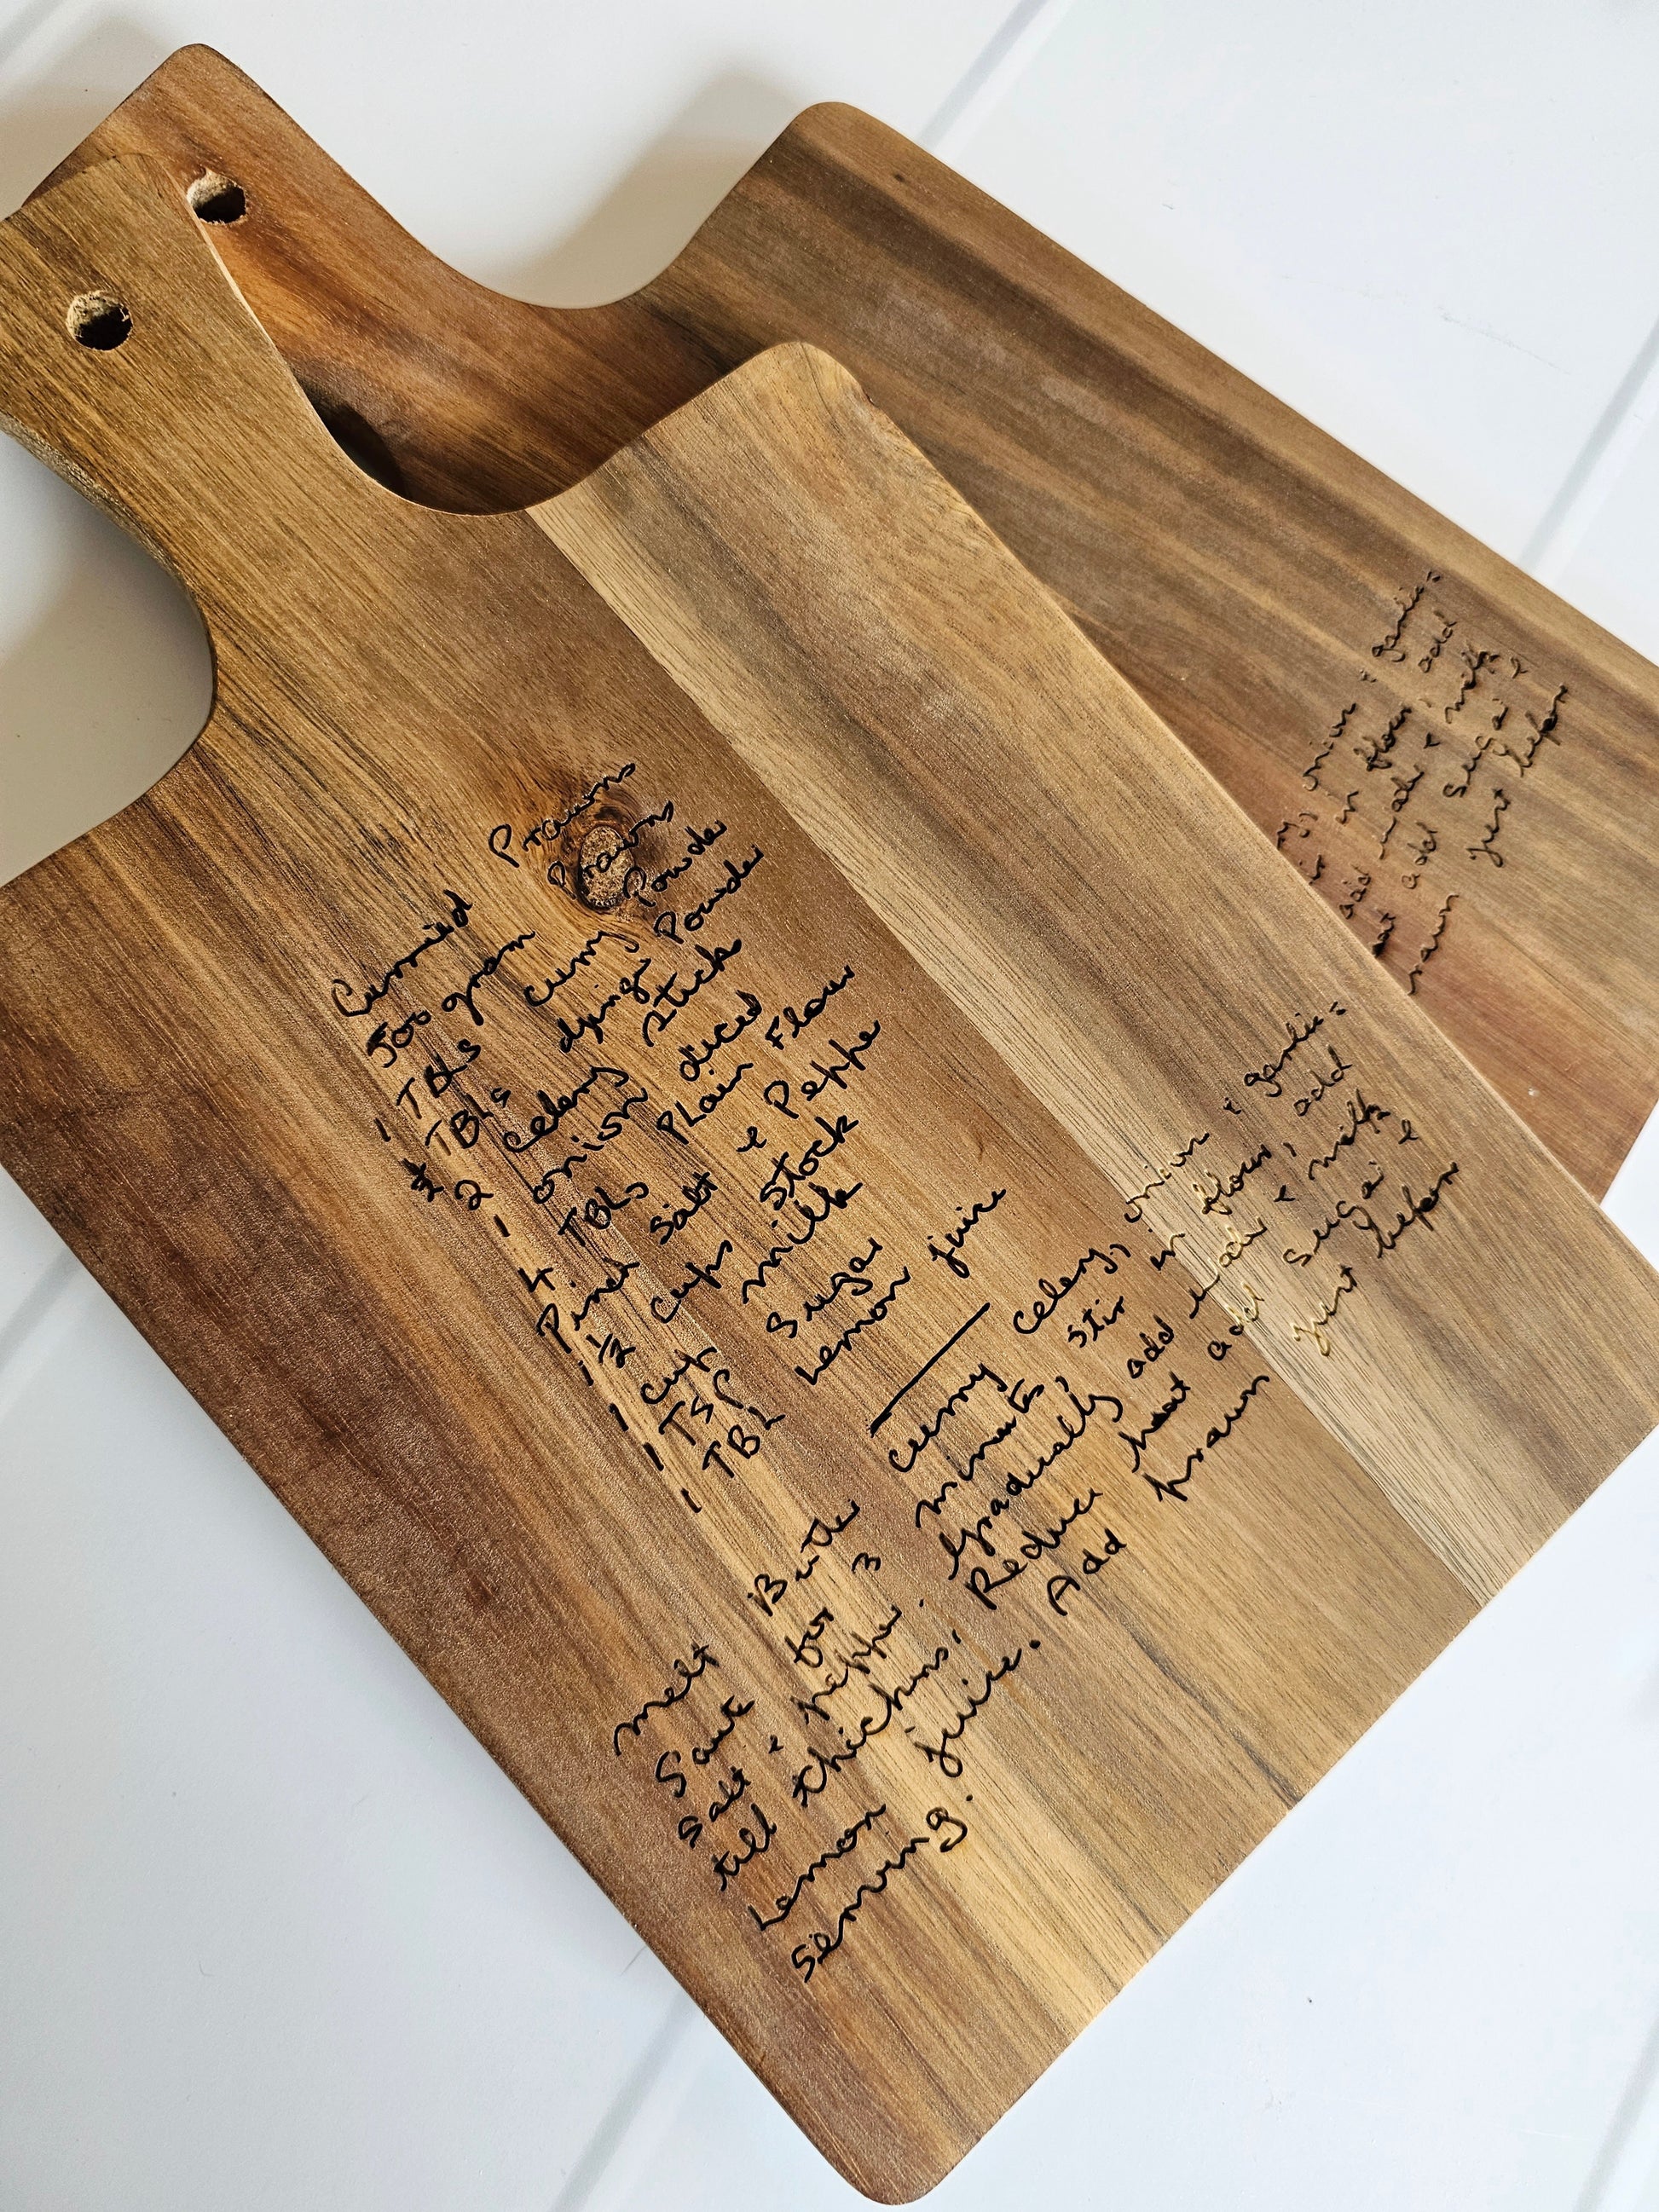 Curried Prawns
500 gram Prawns
1 TBLS curry Powder
TBLS Powder
2 celery stick
1 onion diced
4 TBLS PLain Flour
Pinch salt & Peppe
1 1/2 cups stock
1 cup milk
1 TSP Sugar
1 TBL Lemon juice
melt Butter curry celery, onion & garlic
Saute for 3 minutes stir in flour, add
Salt & pepper. Gradually add & milk
till thickens, Reduce heat add sugar &
Lemon juice. Add prawn just before
serving.
onion & garlic
in flour, add
add & milk
add sugar &
just before